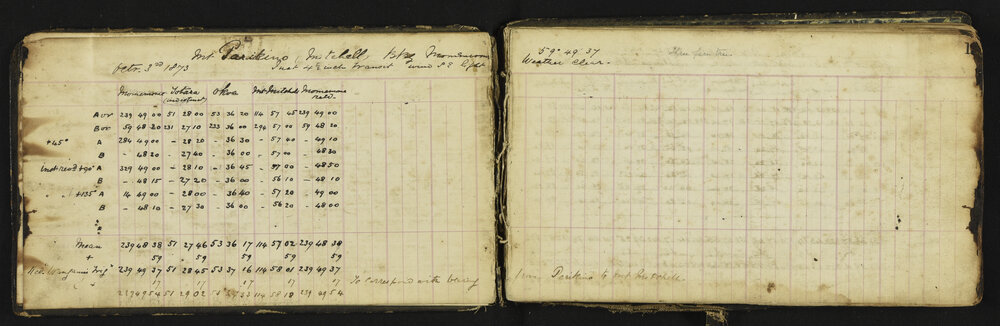 Mt Parikino, (Mitchell) Momemomo
Octr. 3rd 1873 Inst 4 8 inch Transit wind S E light
Momemomo Totara Okoa Mt Mitchell Momemomo
(indistinct)
A or 239 49 00 51 28 00 53 36 20 114 57 45 239 49 00
B or 59 48 20 231 27 10 233 36 00 294 57 00 59 48 20
+45° A 284 49 00 - 28 20 - 36 30 - 57 40 - 49 10
B - 48 20 - 27 40 - 36 00 - 57 00 - 48 30
+90° A 329 49 00 - 28 10 - 36 45 - 57 00 - 48 50
B - 48 15 - 27 20 - 36 00 - 56 10 - 48 10
+135° A 14 49 00 - 28 00 - 36 40 - 57 20 - 49 00
B - 48 10 - 27 30 - 36 00 - 56 20 - 48 00
Mean 239 48 38 51 27 46 53 36 17 114 57 02 239 48 38
+ 59 59 59 59 59
239 49 37 51 28 45 53 37 16 114 58 01 239 49 37
17 17 17 17 17
239 49 54 51 29 02 53 37 33 114 58 18 239 49 54
To correspond with bearing
59° 49' 37
Weather Clear.
from Parikino to Mt Mitchell
1